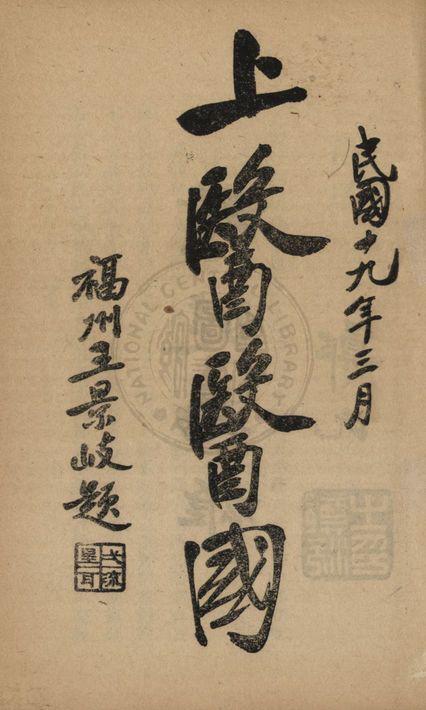 民國十九年三月
上醫醫國
福州王景岐題
NATIONAL CENTRAL LIBRARY